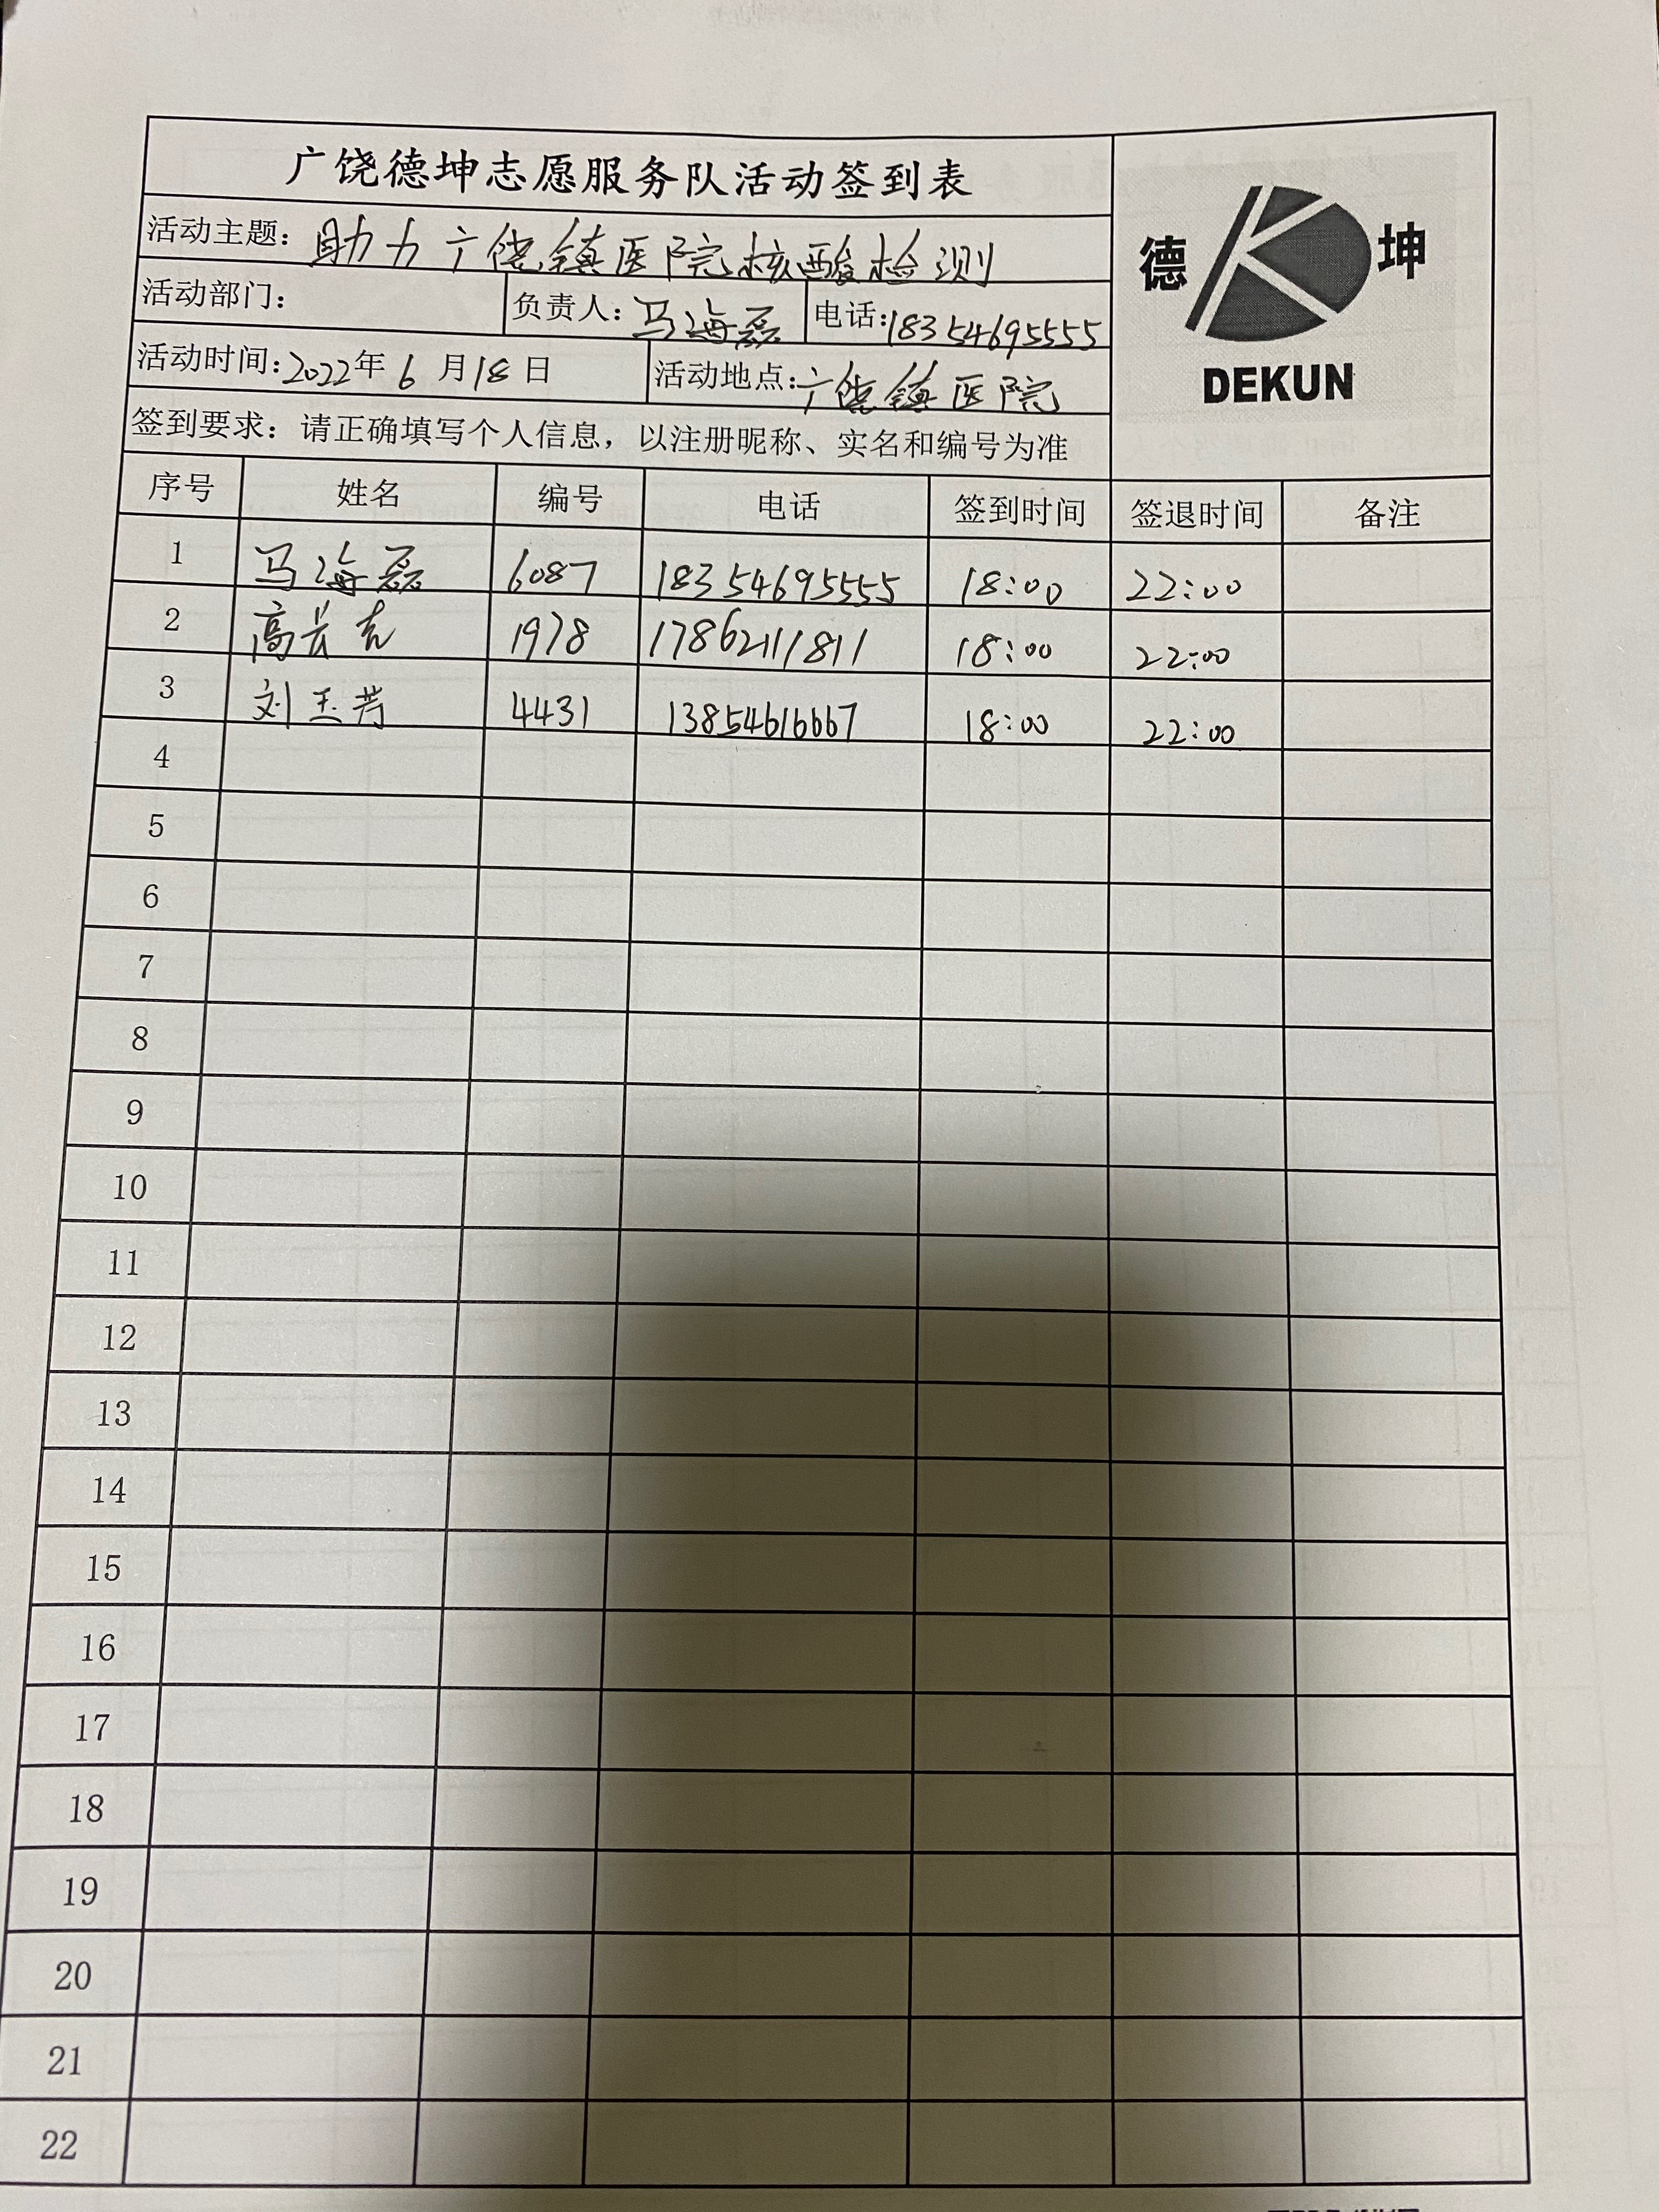 广饶德坤志愿服务队活动签到表
德 坤
DEKUN
活动主题：助力广饶镇医院核酸检测
活动部门： 负责人：马海磊 电话：18354695555
活动时间：2022年6月18日 活动地点：广饶镇医院
签到要求：请正确填写个人信息，以注册昵称、实名和编号为准
序号 姓名 编号 电话 签到时间 签退时间 备注
1 马海磊 6087 18354695555 18:00 22:00
2 高长 1978 17862111811 18:00 22:00
3 刘玉芳 4431 13854616667 18:00 22:00
4
5
6
7
8
9
10
11
12
13
14
15
16
17
18
19
20
21
22